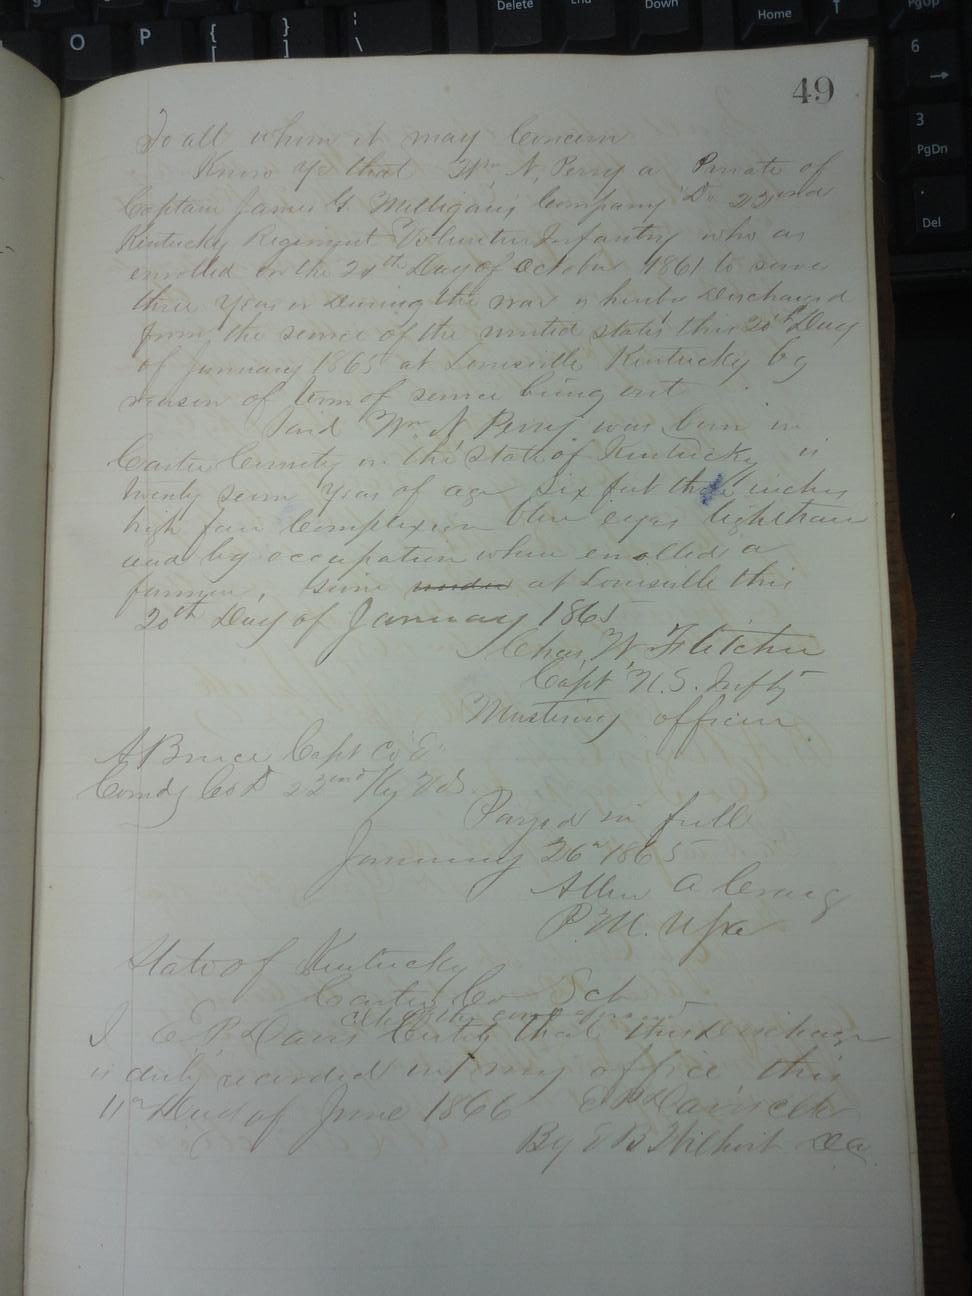 O P { [ } ] | \ Delete End Down Home ↑ PgUp
6 →
3 PgDn
. Del
49
To all whom it may Concern
Know Ye that Wm N, Perry a Private of
Captain James G. Milligan's Company "D" 22nd
Kentucky Regiment Volunteer Infantry who as
enrolled on the day of October 1861 to serve
three years or During the war is hereby Discharged
from the service of the united states this 20th Day
of January 1865 at Louisville Kentucky by
reason of term of service being out
Said Wm N Perry was born in
Carter County in the state of Kentucky is
twenty seven years of age six feet three inches
high fair Complexion blue eyes light hair
and by occupation when enrolled a
farmer, given at Louisville this
20th Day of January 1865
Chas. W. Fletcher
Capt U.S. Infty
Mustering officer
A Bruce Capt Co E
Comdg Co D 22nd Ky Vol
Payed in full
January 26th 1865
Allen A Craig
P.M. USA
State of Kentucky
Carter Co Sct
clk of the court aforesaid
I E P Davis Certify that this Discharge
is duly recorded in my office this
11th of June 1866 E P Davis clk
By E B Wilhoit DC